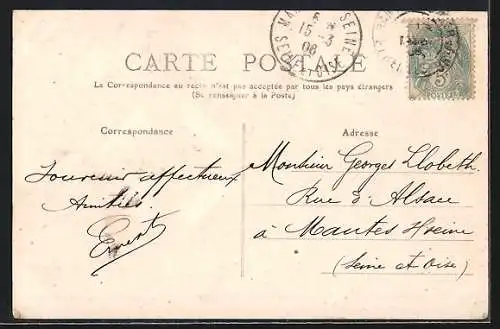 MA SEINE
6
15-3
06
SEINE ET OISE
CARTE POSTALE
La Correspondance au recto n'est pas acceptée par tous les pays étrangers
(Se renseigner à la Poste)
Correspondance
Adresse
Souvenir affectueux
Amitiés.
Ernest
Monsieur Georges Llobeth
Rue d'Alsace
à Mantes
(Seine et Oise)